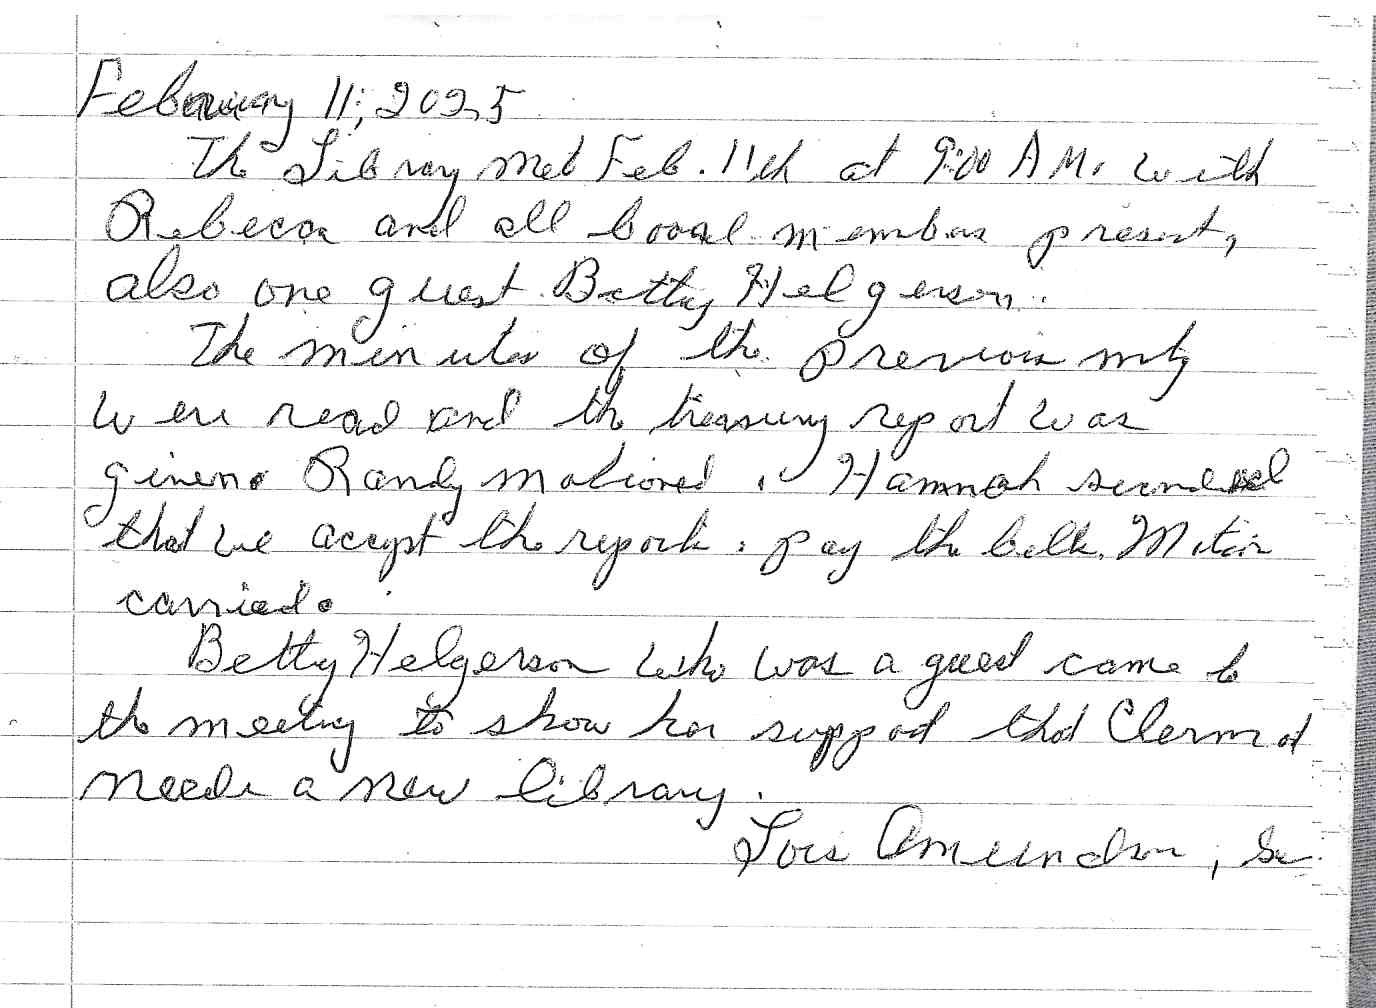 February 11, 2025
The Library met Feb. 11th at 9:00 A.M. with
Rebecca and all board members present,
also one guest Betty Helgerson.
The minutes of the previous mtg
were read and the treasury report was
given. Randy motioned, Hannah seconded
that we accept the report & pay the bills. Motion
carried.
Betty Helgerson who was a guest came to
the meeting to show her support that Clermont
needs a new library.
Lois Amundson, Sec.